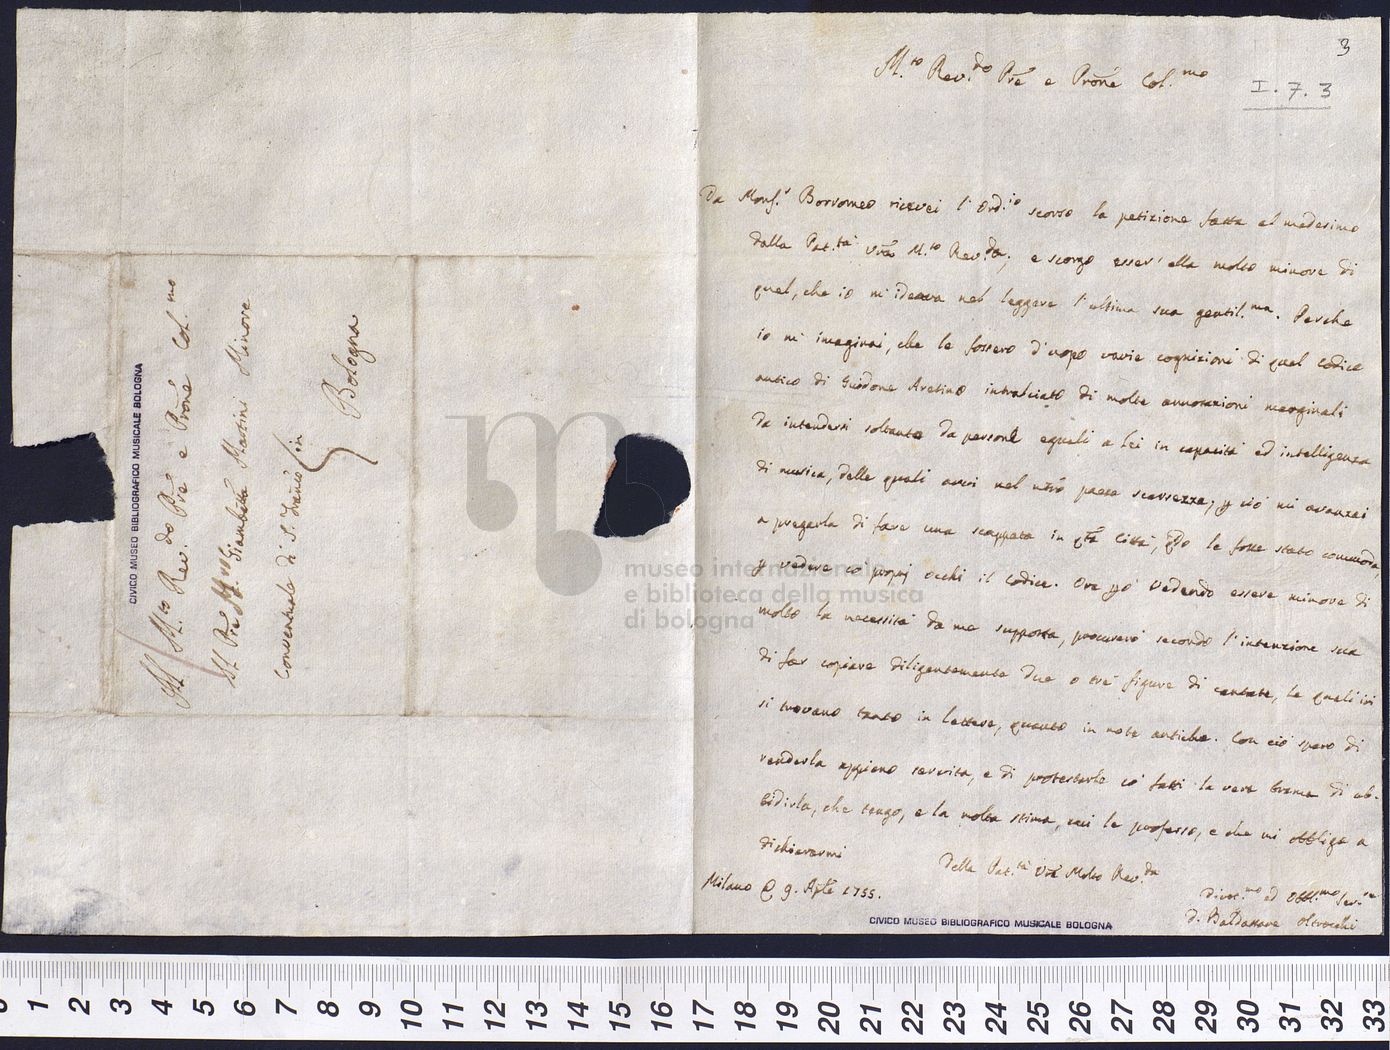 3
I. 7. 3
M.to Rev.do Prē e Prōne Col.mo
Da Monf.r Borromeo ricevei l'Ord.io scorso la petizione fatta al medesimo
dalla Pat.tà Vr̃a M.to Rev.da; e scorgo esser'ella molto minore di
quel, che io m'ideava nel leggere l'ultima sua gentil.ma. Perche
io m'imaginai, che le fossero d'uopo varie cognizioni di quel Codice
antico di Guidone Aretino intralciato di molte annotazioni marginali
da intendersi soltanto da persone eguali a Lei in capacità ed intelligenza
di musica, delle quali avvi nel nr̃o paese scarsezza; e ciò mi avanzai
a pregarla di fare una scappata in q̃ta Città, q̃do le fosse stato commodo,
vedere co' proprj occhi il Codice. Ora vedendo essere minore di
molto la necessità da me supposta, procurerò secondo l'intenzione sua
di far copiare diligentemente due o tre figure di cantate, le quali ivi
si trovano tanto in lettere, quanto in note antiche. Con ciò spero di
renderla appieno servita, e di protestarle co' fatti la vera brama di ub-
bidirla, che tengo, e la molta stima, che le professo, e che mi obbliga a
dichiararmi
Della Pat.tà Vr̃a Molto Rev.da
Milano 9. Aprle 1755.
Divot.mo ed Obbl.mo Ser.re
D. Baldassare Oltrocchi
Al M.to Rev.do Prē e Prōne Col.mo
Il Prē Giambatta Martini Minore
Conventuale di S. Franco in
Bologna
CIVICO MUSEO BIBLIOGRAFICO MUSICALE BOLOGNA
CIVICO MUSEO BIBLIOGRAFICO MUSICALE BOLOGNA
museo internazionale
e biblioteca della musica
di bologna
0 1 2 3 4 5 6 7 8 9 10 11 12 13 14 15 16 17 18 19 20 21 22 23 24 25 26 27 28 29 30 31 32 33